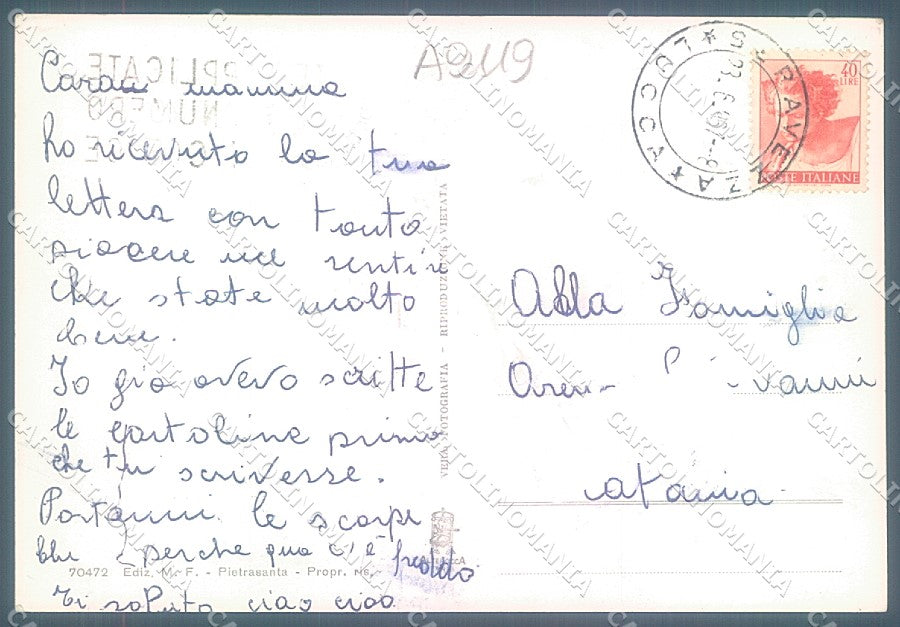 A2119
Carau mamma
ho ricevuto la tua
lettera con tanto
piacere nel sentire
che state molto
bene.
Io gia avevo scritte
le cartoline prima
che tu scrivesse.
Portami le scarpe
blu perche qua c'è freddo
Ti saluto ciao ciao
70472 Ediz. M. F. - Pietrasanta - Propr. ris.
VERA FOTOGRAFIA - RIPRODUZIONE VIETATA
RAVENNA
40
LIRE
POSTE ITALIANE
Alla Famiglia
Catania
CARTOLINOMANIA